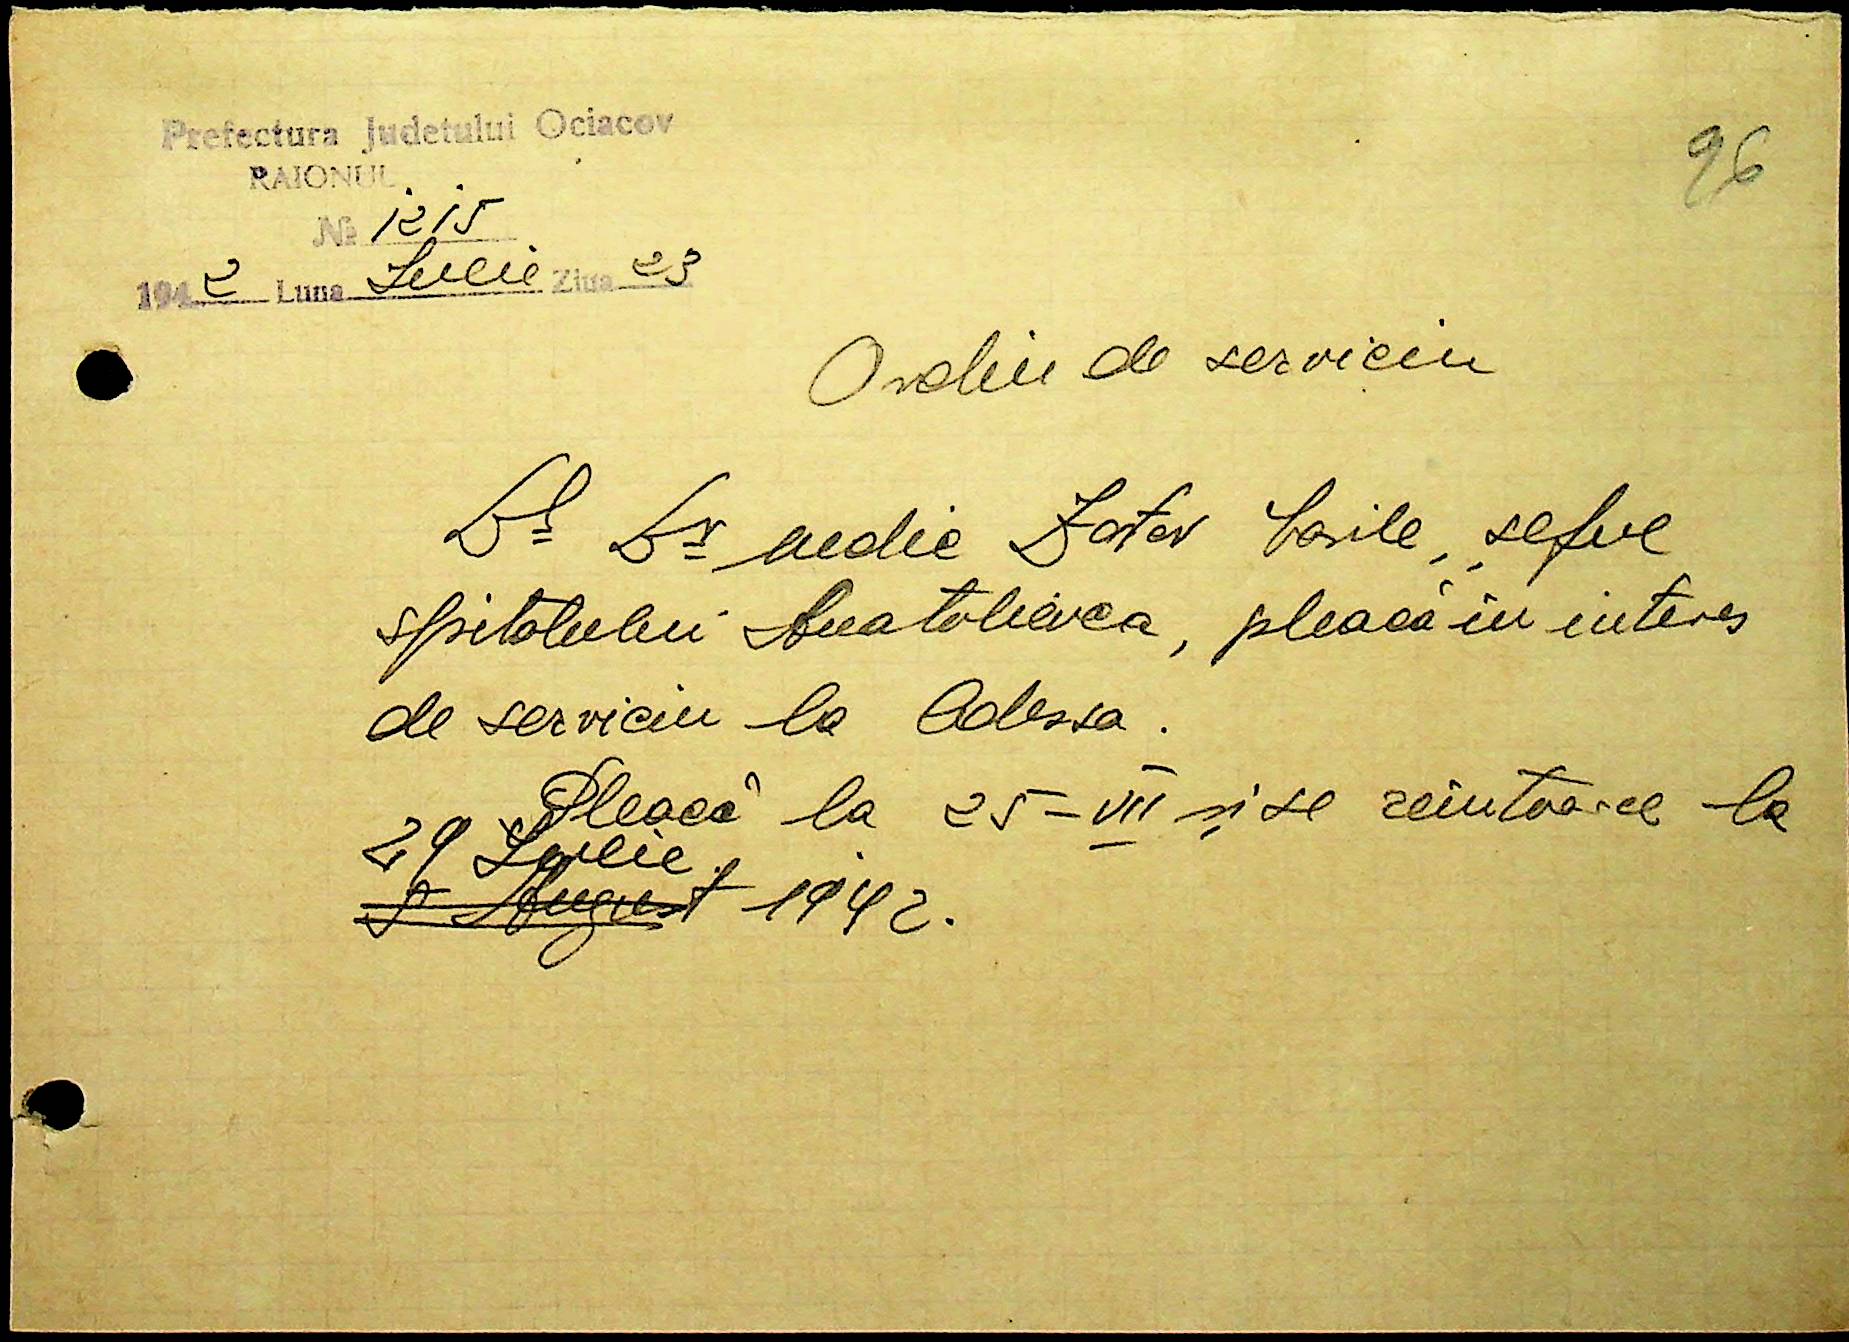 Prefectura Judetului Ociacov
96
RAIONUL
№ 1215
1942 Luna Iulie Ziua 23
Ordin de serviciu
Dl Dr medic Zatov Vasile, șeful
spitalului Anatolievca, pleacă în interes
de serviciu la Odessa.
Pleacă la 25-VII și se reîntoarce la
29 Iulie
5 August 1942.